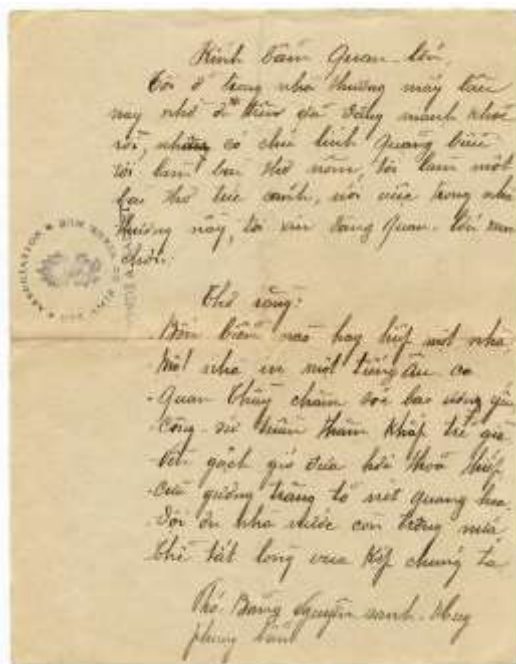 Kính Bẩm Quan lớn,
Tôi ở trong nhà thương mấy tâm
nay nhờ ơn trên đã đặng mạnh khoẻ
rồi, nhưng có chú lính Quảng biểu
tôi làm bài thơ nôm, tôi làm một
bài thơ tức cảnh, nói việc trong nhà
thương này, tôi xin dâng Quan lớn xem
chơi.
Thơ rằng:
- Bốn biển nào hay hiệp một nhà,
Một nhà in một tiếng âu ca
- Quan thầy chăm sóc bao nồng
- Công sứ nhuần thấm khắp trẻ già
- gạch gió đưa hơi thoả hiệp
- Cửa gương trăng tỏ nét quang hoa
- Đội ơn nhà nước con trông
Thề tất lòng vua kíp chúng ta
Nguyễn sanh Huy
phụng bẩm